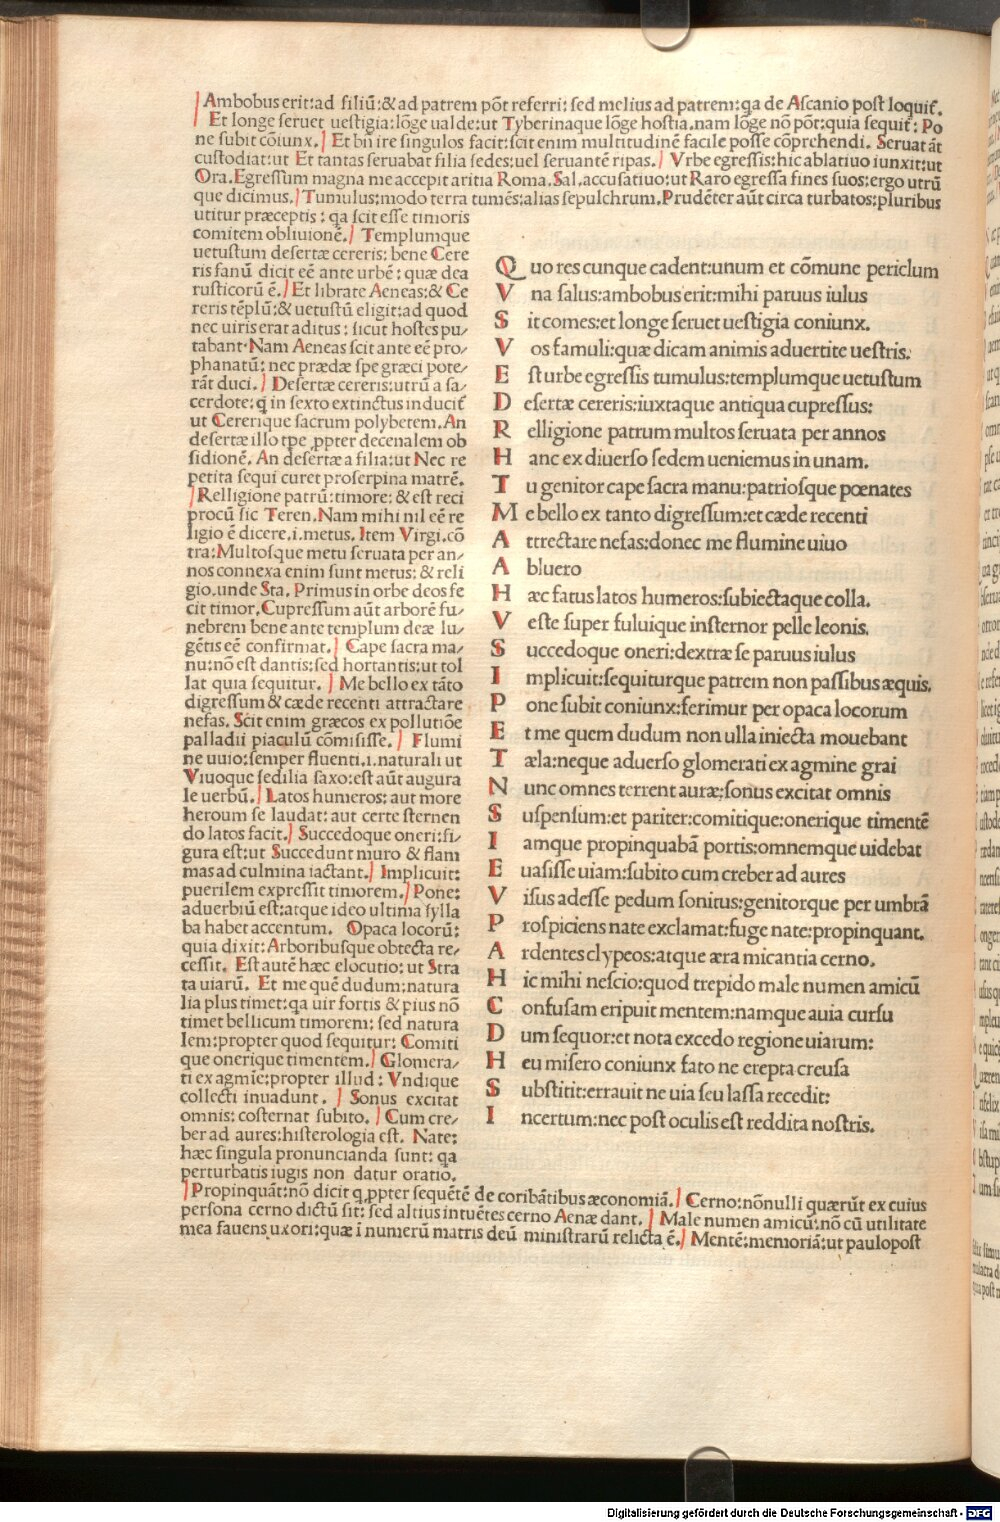 Ambobus erit:ad filiū:&ad patrem pōt referri: sed melius ad patrem:qa de Ascanio post loquiť.
Et longe seruet uestigia:lōge ualde:ut Tyberinaque lōge hostia.nam lōge nō pōt:quia sequiť: Po
ne subit cōiunx.| Et bñ ire singulos facit:scit enim multitudinē facile posse cōprehendi. Seruat āt
custodiat:ut Et tantas seruabat filia sedes:uel seruantē ripas.| Vrbe egressis:hic ablatiuo iunxit:ut
Ora.Egressum magna me accepit aritia Roma.Sal.accusatiuo:ut Raro egressa fines suos:ergo utrū
que dicimus.| Tumulus:modo terra tumēs:alias sepulchrum.Prudēter aūt circa turbatos:pluribus
utitur præceptis: qa scit esse timoris
comitem obliuionē.| Templumque
uetustum desertæ cereris: bene Cere
ris fanū dicit eē ante urbē: quæ dea
rusticorū ē.| Et librate Aeneas:& Ce
reris tēplū:& uetustū eligit:ad quod
nec uiris erat aditus: sicut hostes pu/
tabant.Nam Aeneas scit ante eē pro/
phanatū: nec prædæ spe græci pote/
rāt duci.| Desertæ cereris:utrū a sa/
cerdote: q̄ in sexto extinctus induciť
ut Cererique sacrum polybetem.An
desertæ illo tpe ꝓpter decenalem ob
sidionē. An desertæ a filia:ut Nec re
petita sequi curet proserpina matrē.
|Relligione patrū:timore: & est reci
procū sic Teren.Nam mihi nil eē re
ligio ē dicere.i.metus. Item Virgi.cō
tra:Multosque metu seruata per an/
nos connexa enim sunt metus: & reli
gio.unde Sta. Primus in orbe deos fe
cit timor.Cupressum aūt arborē fu/
nebrem bene ante templum deæ lu/
gētis eē confirmat.| Cape sacra ma/
nu:nō est dantis:sed hortantis:ut tol
lat quia sequitur. | Me bello ex tāto
digressum & cæde recenti attractare
nefas. Scit enim græcos ex pollutiōe
palladii piaculū cōmisisse.| Flumi
ne uuio:semper fluenti.ı.naturali ut
Viuoque sedilia saxo:est aūt augura
le uerbū.| Latos humeros: aut more
heroum se laudat: aut certe sternen
do latos facit.| Succedoque oneri:fi/
gura est:ut Succedunt muro & flam
mas ad culmina iactant.| Implicuit:
puerilem expressit timorem.| Pone:
aduerbiū est:atque ideo ultima sylla
ba habet accentum. Opaca locorū:
quia dixit:Arboribusque obtecta re/
cessit. Est autē hæc elocutio: ut Stra
ta uiarū. Et me quē dudum:natura
lia plus timet:qa uir fortis & pius nō
timet bellicum timorem: sed natura
lem:propter quod sequitur: Comiti
que onerique timentem.| Glomera/
ti ex agmīe:propter illud: Vndique
collecti inuadunt. | Sonus excitat
omnis: costernat subito. | Cum cre/
ber ad aures:histerologia est. Nate:
hæc singula pronuncianda sunt: qa
perturbatis iugis non datur oratio.
Quo res cunque cadent:unum et cōmune periclum
Vna salus:ambobus erit:mihi paruus iulus
Sit comes:et longe seruet uestigia coniunx.
Vos famuli:quæ dicam animis aduertite uestris:
Est urbe egressis tumulus:templumque uetustum
Desertæ cereris:iuxtaque antiqua cupressus:
Relligione patrum multos seruata per annos
Hanc ex diuerso sedem ueniemus in unam.
Tu genitor cape sacra manu:patriosque pœnates
Me bello ex tanto digressum:et cæde recenti
Attrectare nefas:donec me flumine uiuo
Abluero
Hæc fatus latos humeros:subiectaque colla.
Veste super fuluique insternor pelle leonis.
Succedoque oneri:dextræ se paruus iulus
Implicuit:sequiturque patrem non passibus æquis.
Pone subit coniunx:ferimur per opaca locorum
Et me quem dudum non ulla iniecta mouebant
Tæla:neque aduerso glomerati ex agmine grai
Nunc omnes terrent auræ:sonus excitat omnis
Suspensum:et pariter:comitique:onerique timentē
Iamque propinquabā portis:omnemque uidebat
Euasisse uiam:subito cum creber ad aures
Visus adesse pedum sonitus:genitorque per umbrā
Prospiciens nate exclamat:fuge nate:propinquant.
Ardentes clypeos:atque æra micantia cerno.
Hic mihi nescio:quod trepido male numen amicū
Confusam eripuit mentem:namque auia cursu
Dum sequor:et nota excedo regione uiarum:
Heu misero coniunx fato ne erepta creusa
Substitit:errauit ne uia seu lassa recedit:
Incertum:nec post oculis est reddita nostris.
|Propinquāt:nō dicit q ꝓpter sequētē de coribātibus æconomiā.| Cerno:nōnulli quærūt ex cuius
persona cerno dictū sit: sed altius intuētes cerno Aenæ dant. | Male numen amicū:nō cū utilitate
mea fauens uxori:quæ ī numerū matris deū ministrarū relicta ē.| Mentē:memoriā:ut paulopost
Digitalisierung gefördert durch die Deutsche Forschungsgemeinschaft - DFG